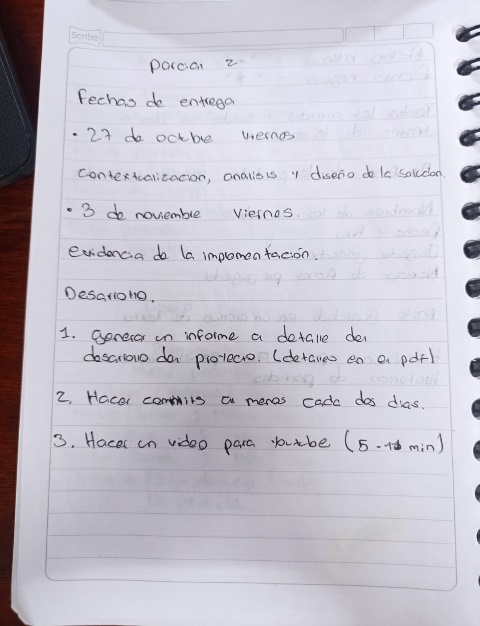 Scribe
Parcial 2
Fechas de entrega
• 27 de octubre viernes
Contextualizacion, analisis y diseño de la solucion.
• 3 de noviembre viernes.
evidencia de la implementación.
Desarrollo.
1. Generar un informe a detalle del
desarrollo del proyecto. (detalles en el pdf)
2. Hacer commits al menos cada dos dias.
3. Hacer un video para youtube (5 - min)